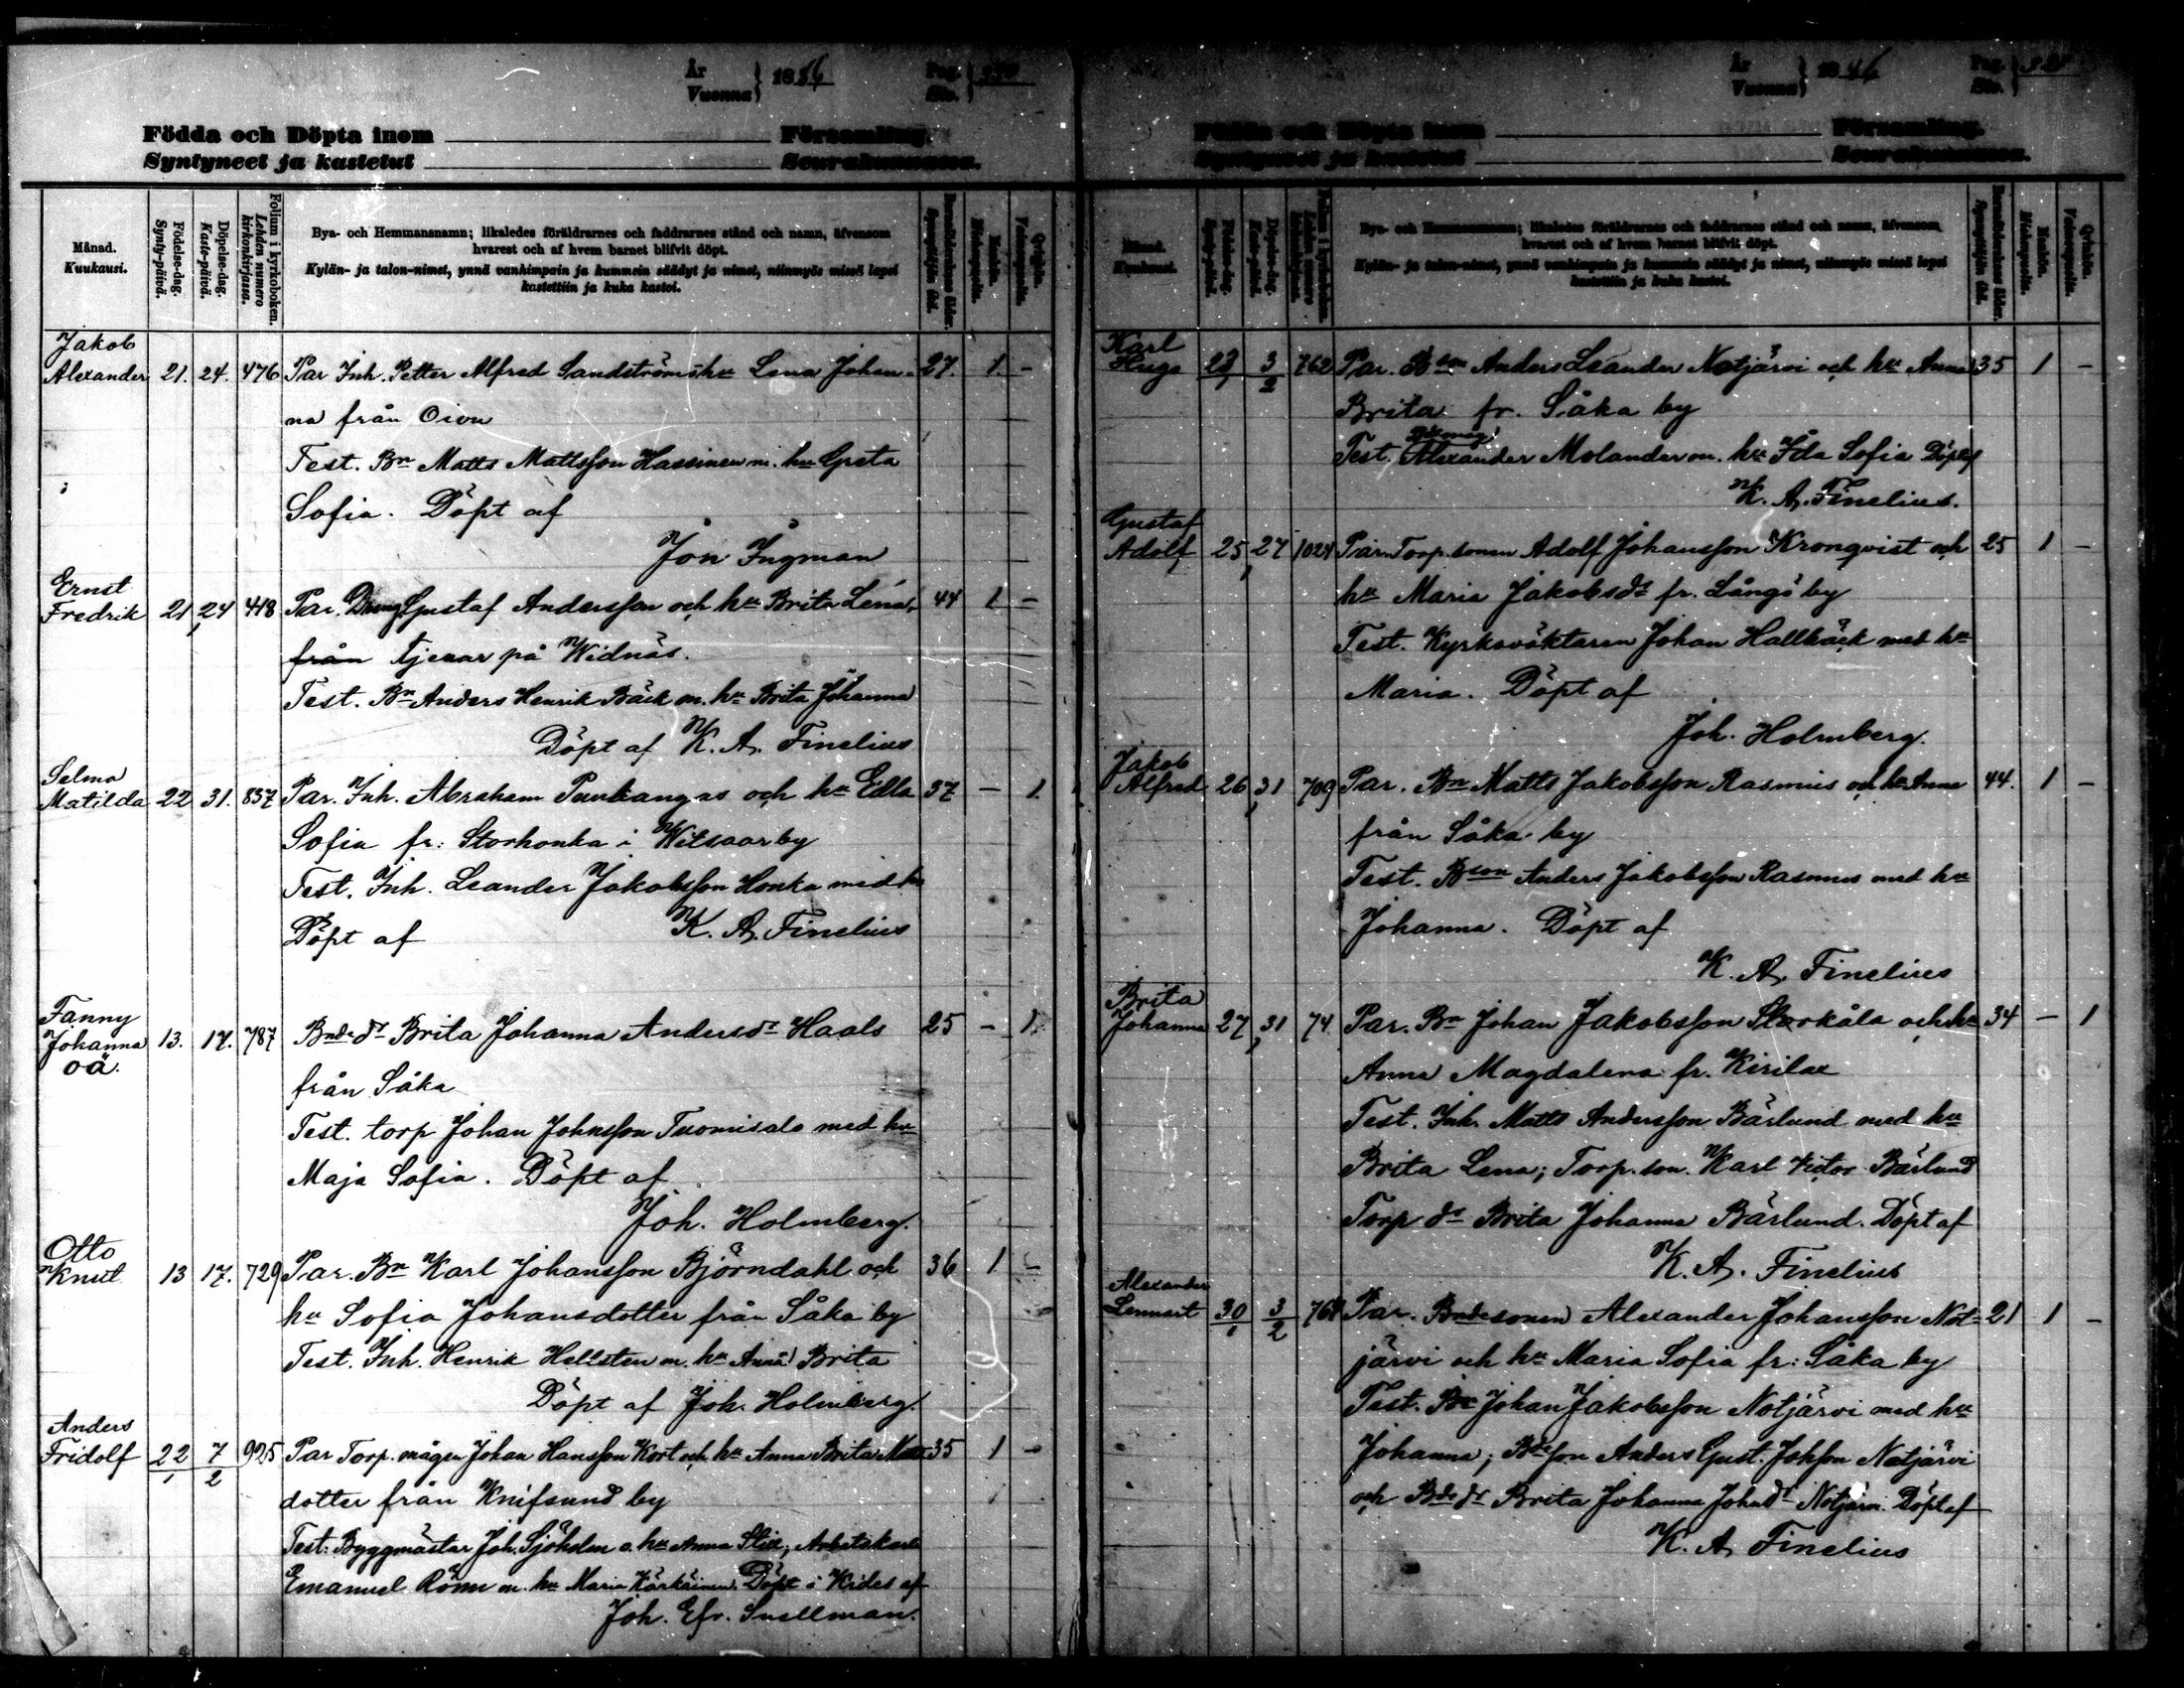 År
Vuonna } 1886
Pag.
Siv.
Födda och Döpta inom Församling.
Syntyneet ja kastetut Seurakunnassa.
Månad.
Kuukausi.
Födelse-dag.
Synty-päivä.
Döpelse-dag.
Kaste-päivä.
Folium i kyrkoboken.
Lehden numero kirkonkirjassa.
Bya- och Hemmansnamn; likaledes föräldrarnes och faddrarnes stånd och namn, äfvensom
hvarest och af hvem barnet blifvit döpt.
Kylän- ja talon-nimet, ynnä vanhimpain ja kummein säädyt ja nimet, niinmyös missä lapsi
kastettiin ja kuka kastoi.
Barnaföderskans ålder.
Synnyttäjän ikä.
Mankön.
Miehenpuolta.
Qvinkön.
Vaimonpuolta.
Jakob
Alexander 21. 24. 476 Par Inh. Petter Alfred Sandström o hu Lena Johan- 27. 1. -
na från Oivu
Test. Bn Matts Mattsson Hassinen m. hu Greta
Sofia. Döpt af
Jon Ingman
Ernst
Fredrik 21 24 418 Par. Dräng Gustaf Andersson och hu Brita Lena, 44 1 -
från tjenar på Widnäs.
Test. Bn Anders Henrik Bäck m. hu Brita Johanna
Döpt af K. A. Finelius
Selma
Matilda 22 31. 857 Par. Inh. Abraham Punkangas och hu Edla 37 - 1.
Sofia fr: Storhonka i Witsaarby
Test. Inh. Leander Jakobsson Honka med hu
Döpt af K. A. Finelius
Fanny
Johanna 13. 17. 787 Bnde dr Brita Johanna Andersdr Haals 25 - 1.
oä.
från Såka
Test. torp Johan Johnsson Tuomisalo med hu
Maja Sofia. Döpt af
Joh. Holmberg.
Otto
Knut 13 17. 729 Par. Bn Karl Johansson Björndahl och 36 1 -
hu Sofia Johansdotter från Såka by
Test. Inh. Henrik Hellsten m. hu Anna Brita
Döpt af Joh. Holmberg.
Anders
Fridolf 22/1 7/2 925 Par Torp. mågen Johan Hansson Kort och hu Anna Brita Matts 35 1 -
dotter från Knifsund by
Test: Byggmästar Joh. Sjöholm o. hu Anna Stix, Arbetskarl
Emanuel Rönn m. hu Maria Kärkäinen. Döpt i Kides af
Joh. Efr. Snellman.
År
Vuonna } 1886
Pag.
Siv.
Födda och Döpta inom Församling.
Syntyneet ja kastetut Seurakunnassa.
Månad.
Kuukausi.
Födelse-dag.
Synty-päivä.
Döpelse-dag.
Kaste-päivä.
Folium i kyrkoboken.
Lehden numero kirkonkirjassa.
Bya- och Hemmansnamn; likaledes föräldrarnes och faddrarnes stånd och namn, äfvensom
hvarest och af hvem barnet blifvit döpt.
Kylän- ja talon-nimet, ynnä vanhimpain ja kummein säädyt ja nimet, niinmyös missä lapsi
kastettiin ja kuka kastoi.
Barnaföderskans ålder.
Synnyttäjän ikä.
Mankön.
Miehenpuolta.
Qvinkön.
Vaimonpuolta.
Karl
Hugo 23/1 3/2 762 Par. Bson Anders Leander Notjärvi och hu Anna 35 1 -
Brita fr. Såka by
Test. Alexander Molander m. hu Ida Sofia Döpt af
K. A. Finelius.
Gustaf
Adolf 25 27 1024 Par. Torp. sonen Adolf Johansson Kronqvist och 25 1 -
hu Maria Jakobsdr fr. Långö by
Test. Kyrkovöktaren Johan Hallbäck med hu
Maria. Döpt af
Joh. Holmberg.
Jakob
Alfred 26 31 709 Par. Bn Matts Jakobsson Rasmus och hu Anna 44. 1 -
från Såka by
Test. Bson Anders Jakobsson Rasmus med hu
Johanna. Döpt af
K. A. Finelius
Brita
Johanna 27 31 74 Par. Bn Johan Jakobsson Storkåla och hu 34 - 1
Anna Magdalena fr. Kirilax
Test. Inh. Matts Andersson Bärlund med hu
Brita Lena; Torp. son. Karl Victor Bärlund
Torp dr Brita Johanna Bärlund. Döpt af
K. A. Finelius
Alexander
Lennart 30/1 3/2 764 Par. Bndesonen Alexander Johansson Not- 21 1 -
järvi och hu Maria Sofia fr: Såka by
Test. Bn Johan Jakobsson Notjärvi med hu
Johanna; Bdeson Anders Gust. Johsson Notjärvi
och Bde dr Brita Johanna Johnsdr Notjärvi. Döpt af
K. A. Finelius